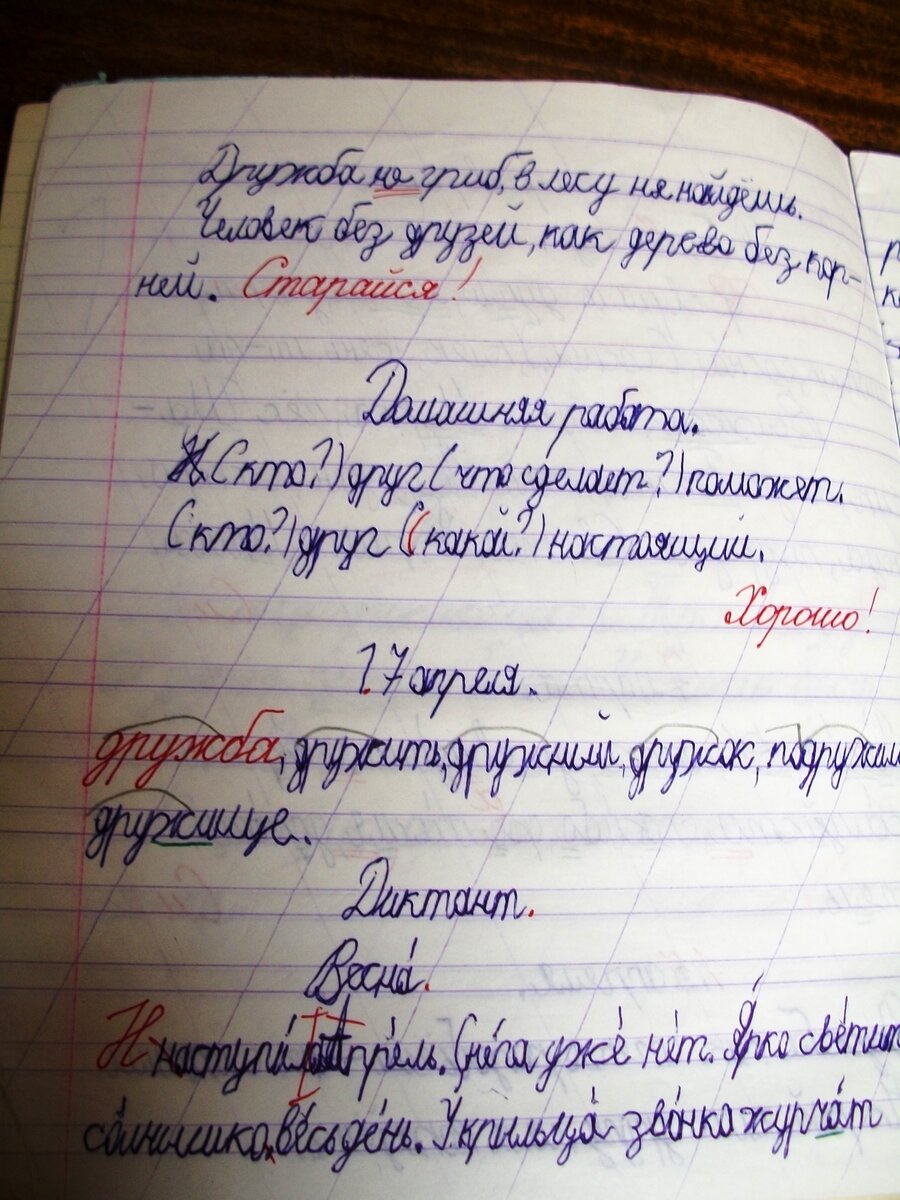 Дружба не гриб, в лесу не найдёшь.
Человек без друзей, как дерево без кор-
ней. Старайся!
Домашняя работа.
(кто?) друг (что сделает?) поможет.
(кто?) друг (какой?) настоящий.
Хорошо!
17 апреля.
дружба, дружить, дружный, дружок, подружил
дружище.
Диктант.
Весна́.
Н наступи́л апре́ль. Сне́га уже́ не́т. Я́рко све́тит
со́лнышко ве́сь де́нь. У крыльца́ зво́нко журча́т